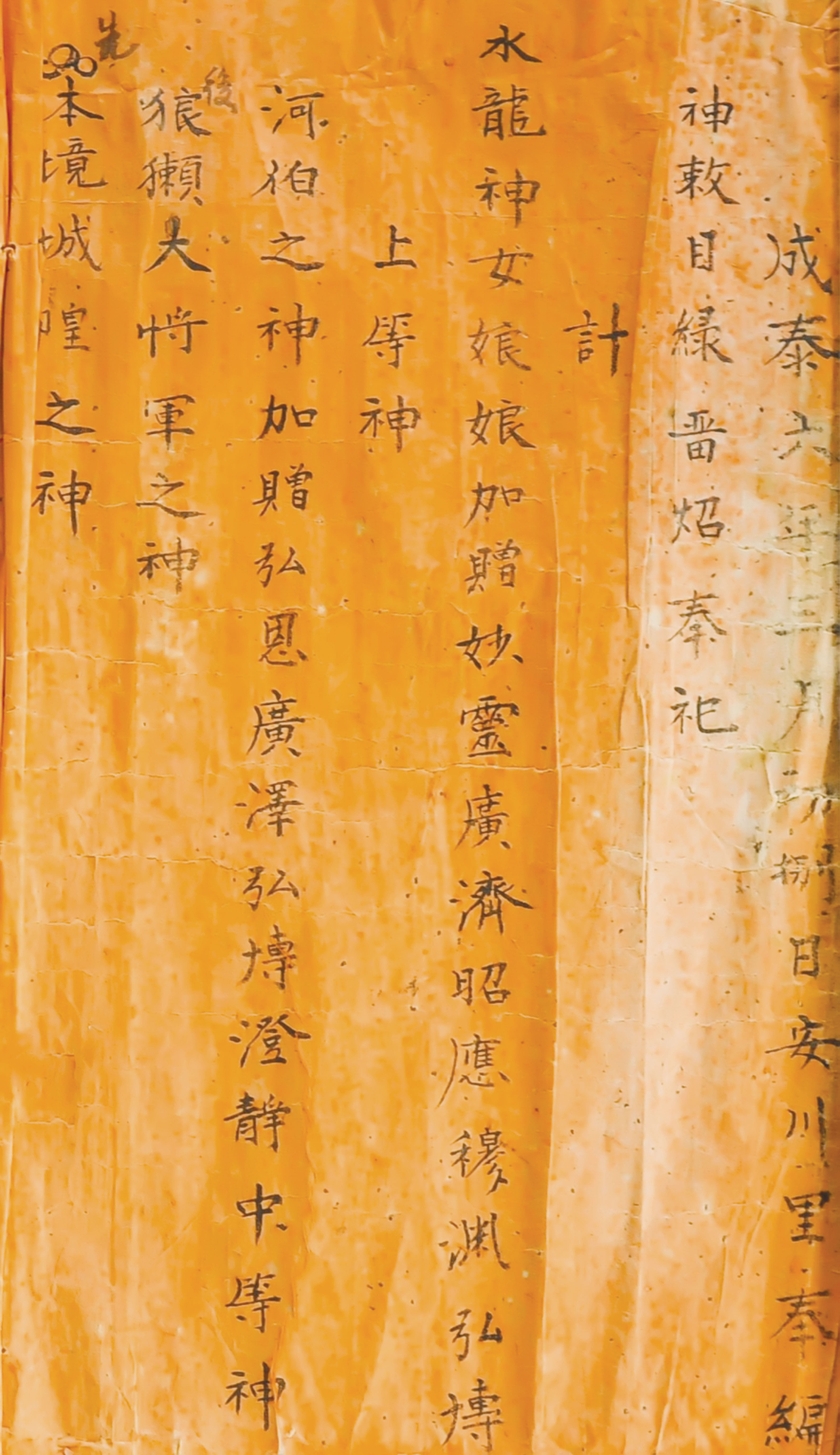 成泰六年三月初捌日安川里奉編
神敕目緑畨炤奉祀
計
水龍神女娘娘加贈妙靈廣濟昭應穆渊弘慱
上等神
河伯之神加贈弘恩廣澤弘慱澄靜中等神
後
狼獺大将軍之神
先
本境城隍之神